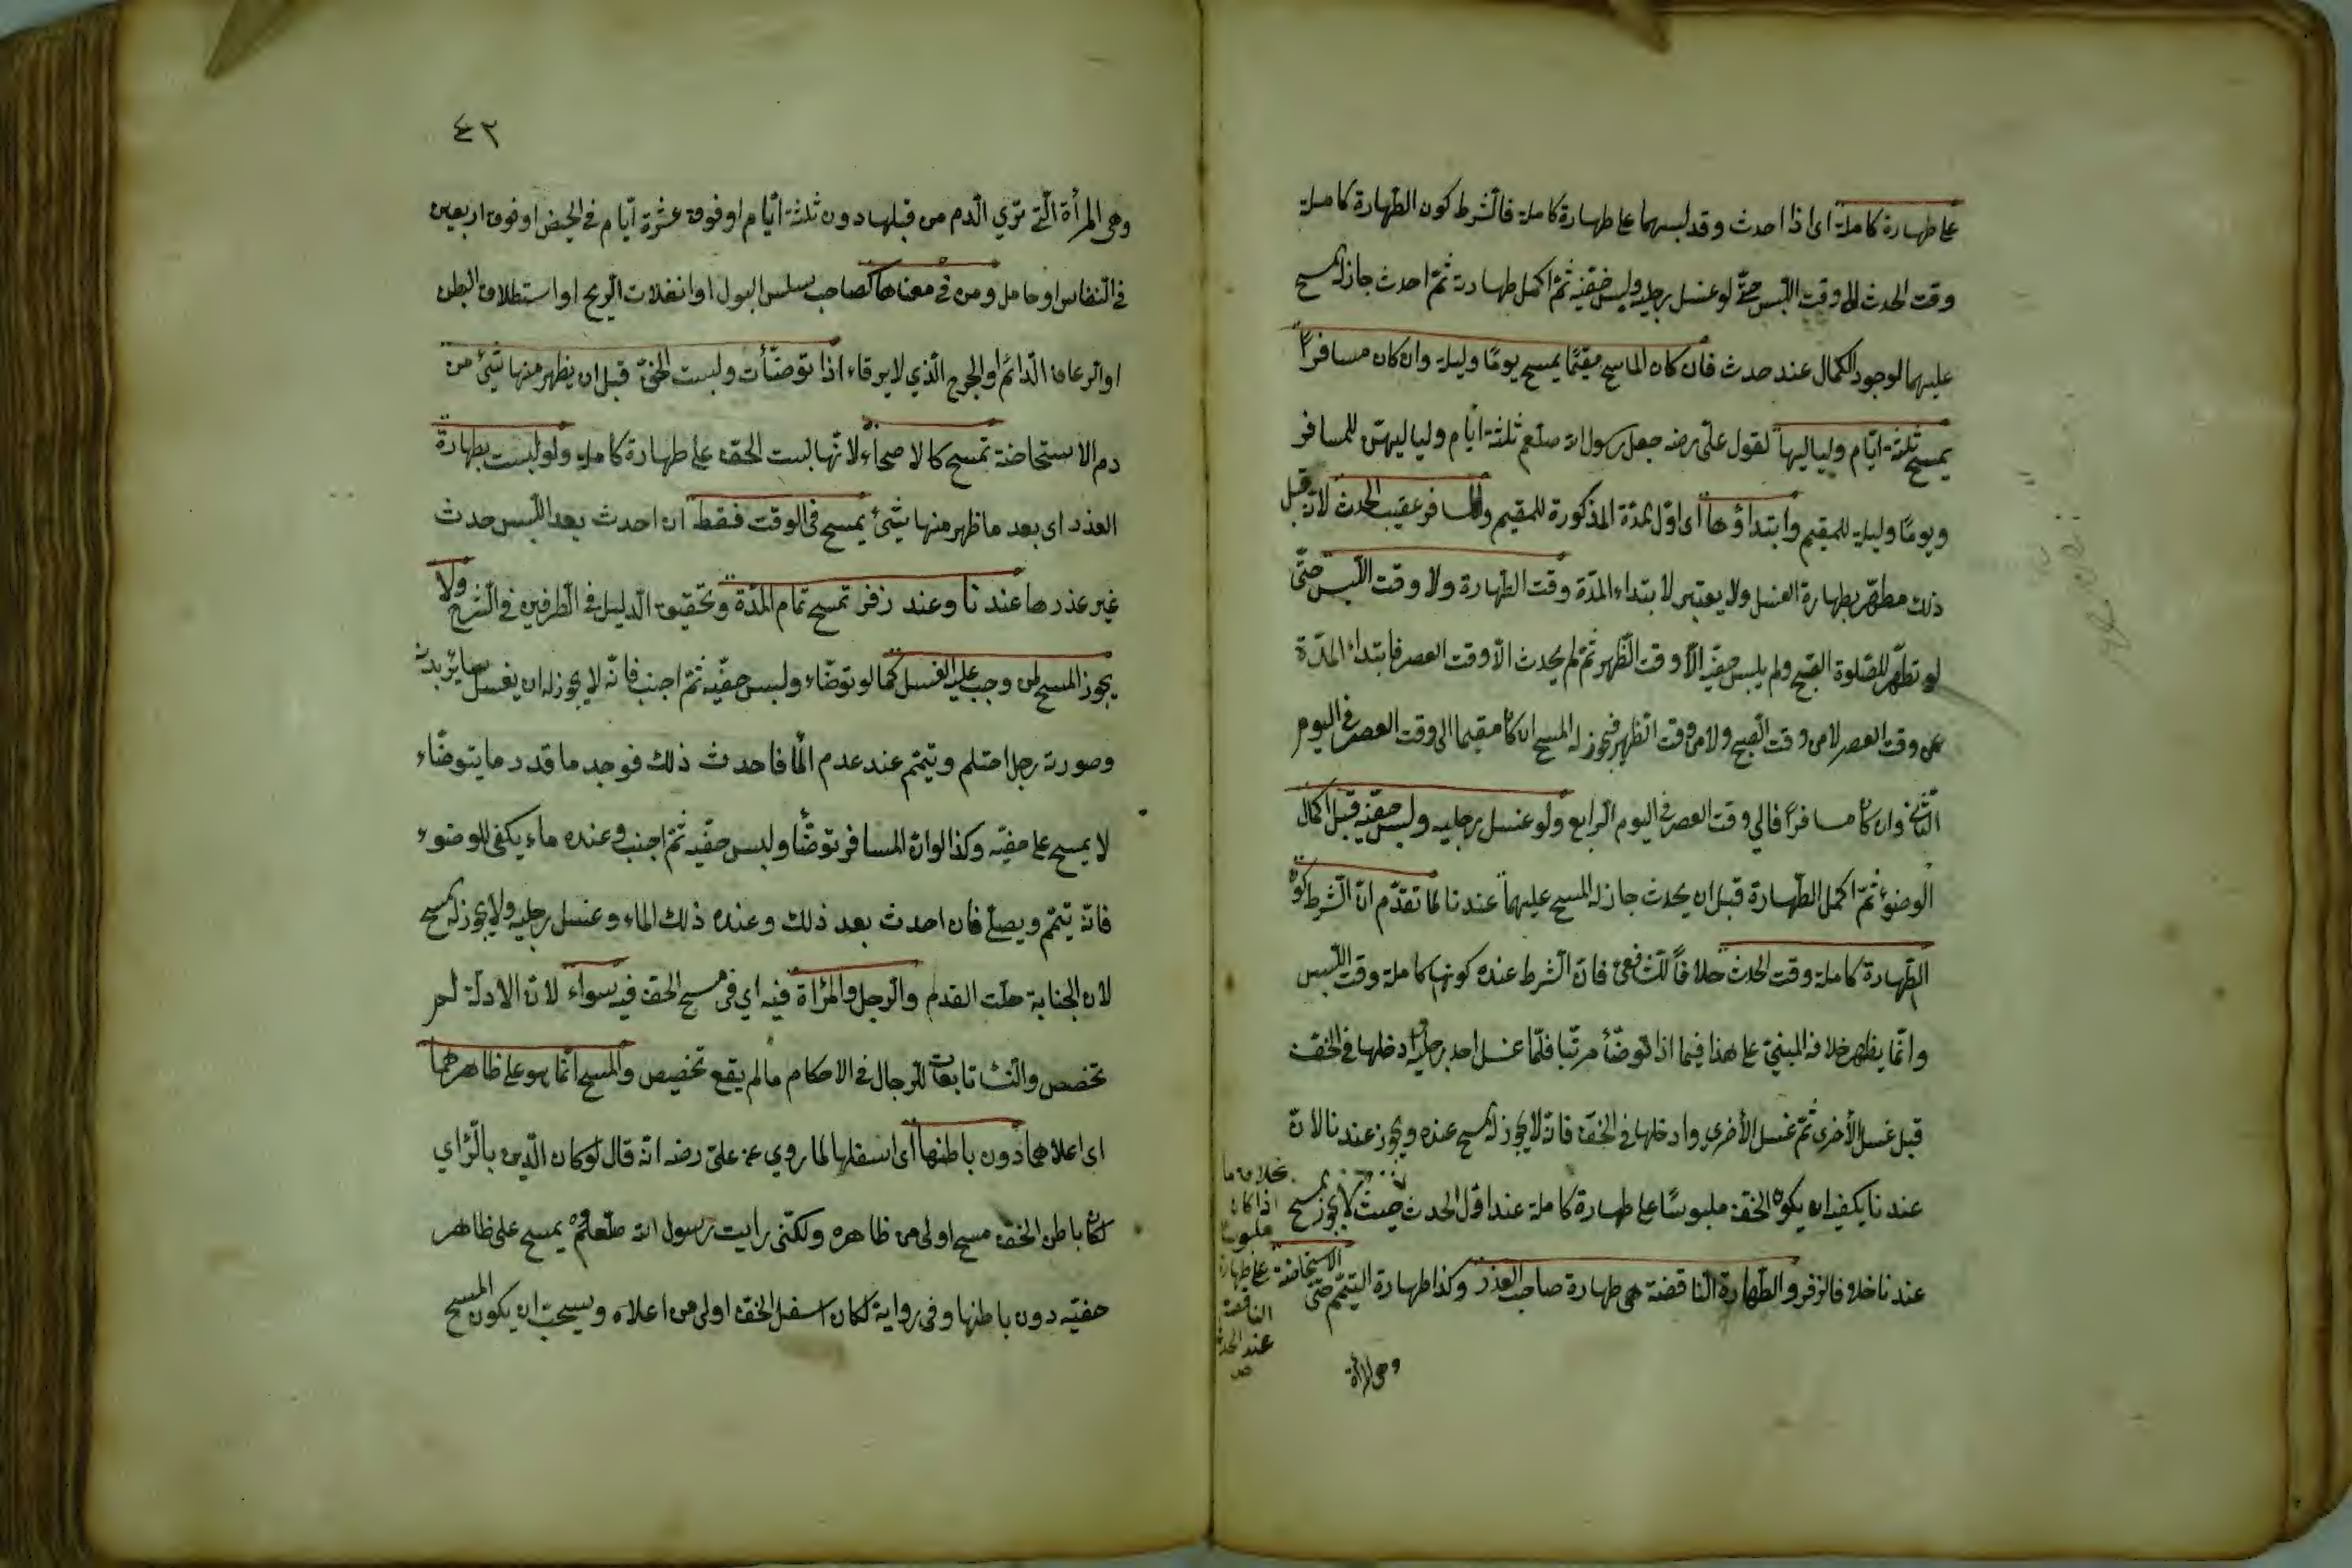 على طهارة كاملة اى اذا احدث وقد لبسهما على طهارة كاملة فالشرط كون الطهارة كاملة
وقت الحدث لا وقت اللبس حتى لو غسل رجليه ولبس خفيه ثم اكمل طهارته ثم احدث جاز له المسح
عليهما لوجود الكمال عند حدث فان كان الماسح مقيمًا يمسح يومًا وليلة وان كان مسافرًا
يمسح ثلثة ايّام ولياليها لقول علىّ رضه جعل رسول الله صلعم ثلثة ايّام ولياليهنّ للمسافر
ويومًا وليلة للمقيم وابتداؤها اى اوّل المدّة المذكورة للمقيم والمسافر عقيب الحدث لانّ قبل
ذلك مطهّر بطهارة الغسل ولا يعتبر لابتداء المدّة وقت الطهارة ولا وقت اللبس حتّى
لو تطهّر للصّلوة الصّبح ولم يلبس خفّيه الّا وقت الظّهر ثمّ لم يحدث الّا وقت العصر فابتداء المدّة
من وقت العصر لا من وقت الصّبح ولا من وقت الظهر فيجوز له المسح ان كان مقيما الى وقت العصر فى اليوم
الثّانى وان كان مسافرًا فالي وقت العصر فى اليوم الرابع ولو غسل رجليه ولبس خفيّه قبل اكمال
الوضوء ثمّ اكمل الطّهارة قبل ان يحدث جاز له المسح عليهما عندنا لما تقدّم انّ الشّرط كون
الطّهارة كاملة وقت الحدث خلافًا للشافعىّ فانّ الشرط عنده كونها كاملة وقت اللّبس
وانّما يظهر خلافه المبنىّ على هذا فيما اذا توضّأ مرتّبا فلمّا غسل احد رجليه ادخلها فى الخفّ
قبل غسل الأخرى ثمّ غسل الأخرى وادخلها فى الخفّ فانّه لا يجوز له المسح عنده ويجوز عندنا لانّ
عندنا يكفيه ان يكون الخفّ ملبوسًا على طهارة كاملة عند اوّل الحدث حيث لا يجوز المسح
عندنا خلافا لزفر والطّهارة النّاقصة هى طهارة صاحب العذر وكذا طهارة التيمّم حتّى الاستحاضة
بخلاف ما
اذا كان
ملبوسا
على طهارة
الناقصة
عند الحدث
ص
وهى المرأة
٤٢
وهى المرأة الّتى تري الدّم من قبلها دون ثلثة ايّام او فوق عشرة ايّام فى الحيض او فوق اربعين
فى النفاس او حامل ومن فى معناها كصاحب سلس البول او انفلات الريح او استطلاق البطن
او الرعاف الدّائم او الجرح الّذي لا يرقاء اذا توضّأت ولبست الخفّ قبل ان يظهر منها شيئ من
دم الاستحاضة تمسح كالاصحاء لانّها لبست الخفّ على طهارة كاملة ولو لبست بطهارة
العذر اى بعد ما ظهر منها شيئ يمسح فى الوقت فقط ان احدث بعد اللّبس حدث
غير عذرها عندنا وعند زفر تمسح تمام المدّة وتحقيق الدليل فى الطرفين فى الشرح ولا
يجوز المسح لمن وجب عليه الغسل كما لو توضّاء ولبس خفّيه ثمّ اجنب فانّه لا يجوز له ان يغسل ساير بدنه
وصورته رجل احتلم وتيمّم عند عدم الماء فاحدث ذلك فوجد ماء قدر ما يتوضّاء
لا يمسح على خفيّه وكذا لو ان المسافر توضّأ ولبس خفّيه ثمّ اجنب وعنده ماء يكفى للوضوء
فانّه يتيمّم ويصلّى فان احدث بعد ذلك وعنده ذلك الماء وغسل رجليه ولا يجوز له المسح
لان الجنابة حلّت القدم والرجل والمرأة فيه اي فى مسح الخفّ فيه سواء لانّ الادلّة لم
تخصص والنّسا تابعات للرجال فى الاحكام ما لم يقع تخصيص والمسح انّما هو على ظاهرهما
اى اعلاهما دون باطنها اى اسفلها لما روي عن علىّ رضه انّه قال لو كان الدّين بالرّاي
لكان باطن الخفّ مسح اولى من ظاهره ولكنّى رايت رسول الله صلعم يمسح على ظاهر
خفيّه دون باطنها وفى رواية لكان اسفل الخفّ اولى من اعلاه ويستحبّ ان يكون المسح